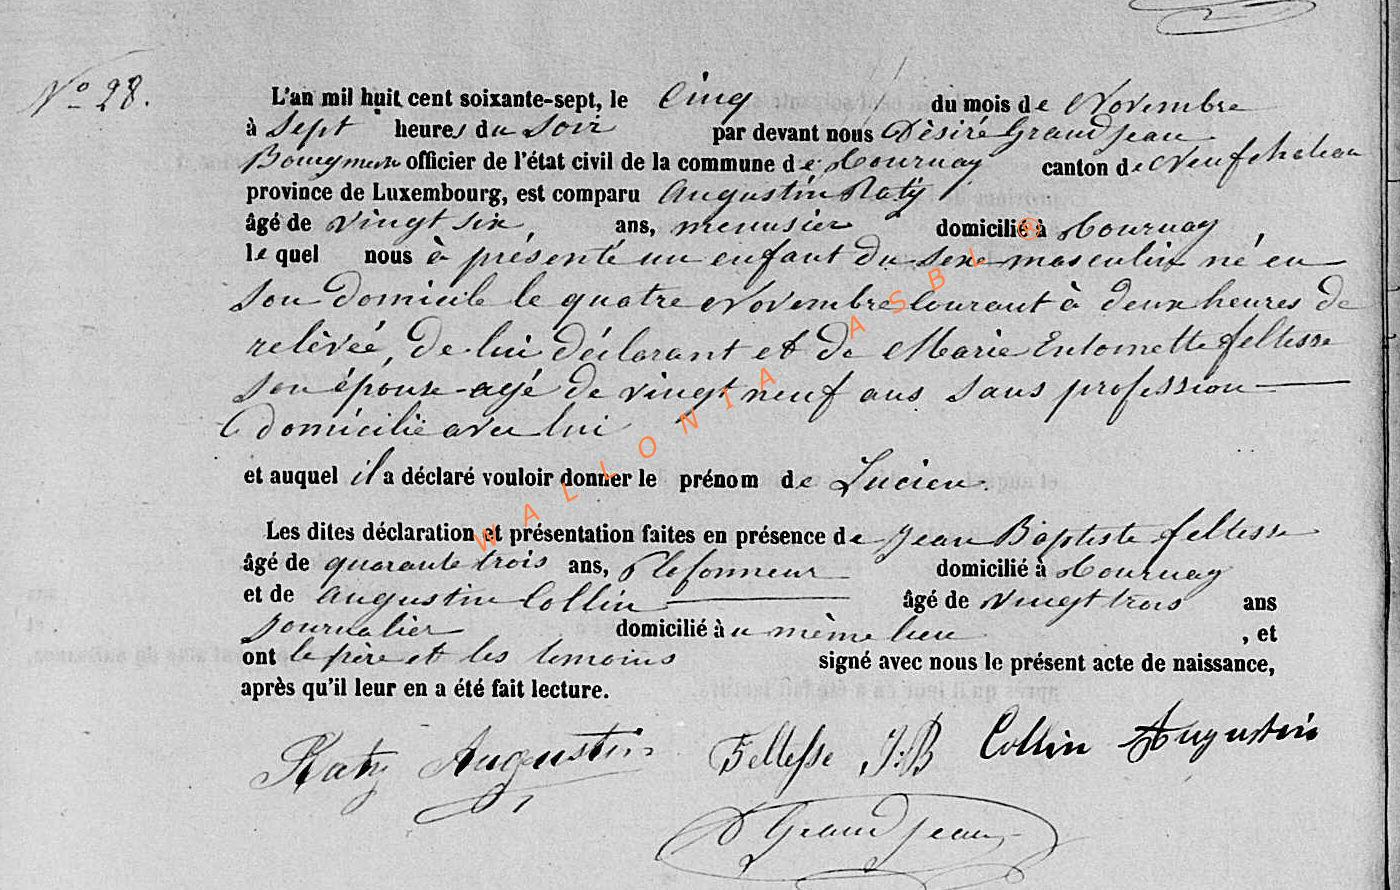 N° 28.
L'an mil huit cent soixante-sept, le Cinq du mois de Novembre
à Sept heures du Soir par devant nous Dèsiré Grandjean
Bourgmestre officier de l'état civil de la commune de Tournay canton de Neufchateau
province de Luxembourg, est comparu Augustin Raty
âgé de vingt six, ans, menusier domicilié à Tournay,
le quel nous à présenté un enfant du sexe masculin né en
son domicile le quatre Novembre Courant à deux heures de
relèvée, de lui déclarant et de Marie Entoinette feltesse
son épouse agé de vingt neuf ans sans profession
domicilié avec lui
et auquel il a déclaré vouloir donner le prénom de Lucien.
Les dites déclaration et présentation faites en présence de Jean Baptiste feltesse
âgé de quarante trois ans, Plafonneur domicilié à Tournay
et de Augustin Collin âgé de vingt trois ans
Journalier domicilié au mème lieu, et
ont le père et les temoins signé avec nous le présent acte de naissance,
après qu'il leur en a été fait lecture.
Raty Augustin Feltesse J:B Collin Augustin
D Grandjean
WALLONIA ASBL ®